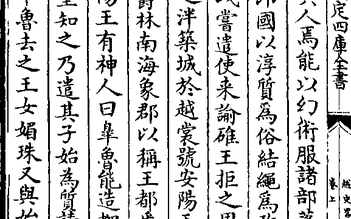 定四庫全書
越史略
卷上
異人焉能以幻術服諸部落
郎國以淳質爲俗結繩爲
踐嘗遣使來諭碓王拒之周
泮築城於越裳號安陽王
鬱林南海象郡以稱王都番
陽王有神人曰臯魯能造柳
皇知之乃遣其子始爲質請
魯去之王女媚珠又與始